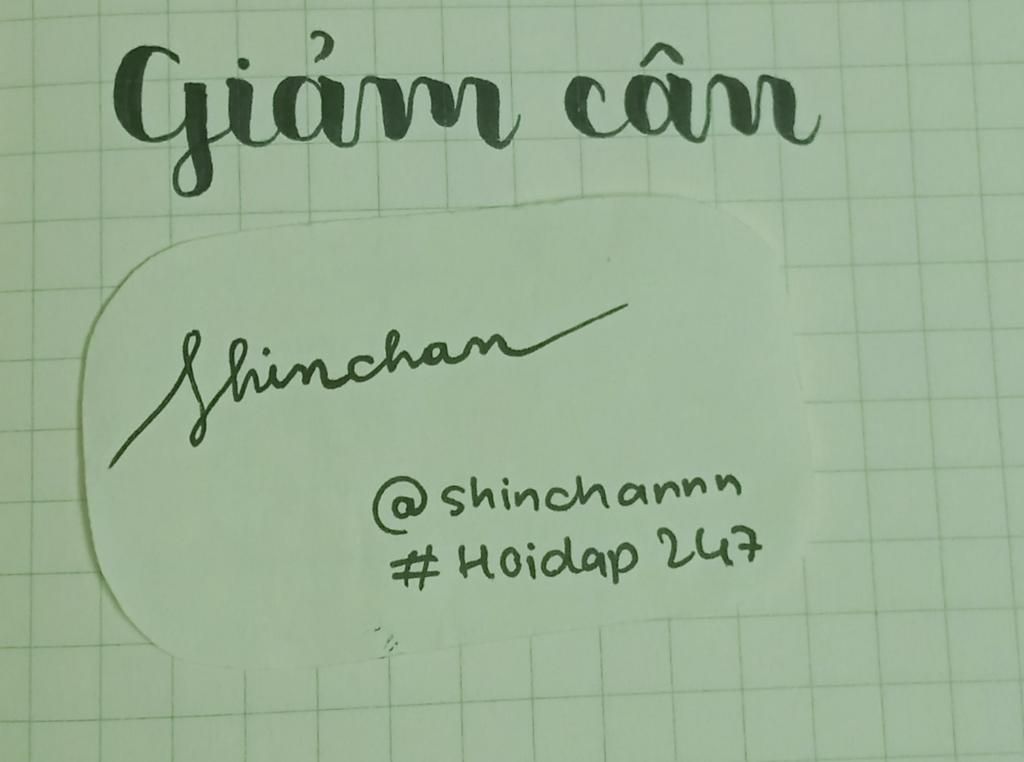 Giảm cân
Shinchan
@shinchannn
#Hoidap 247